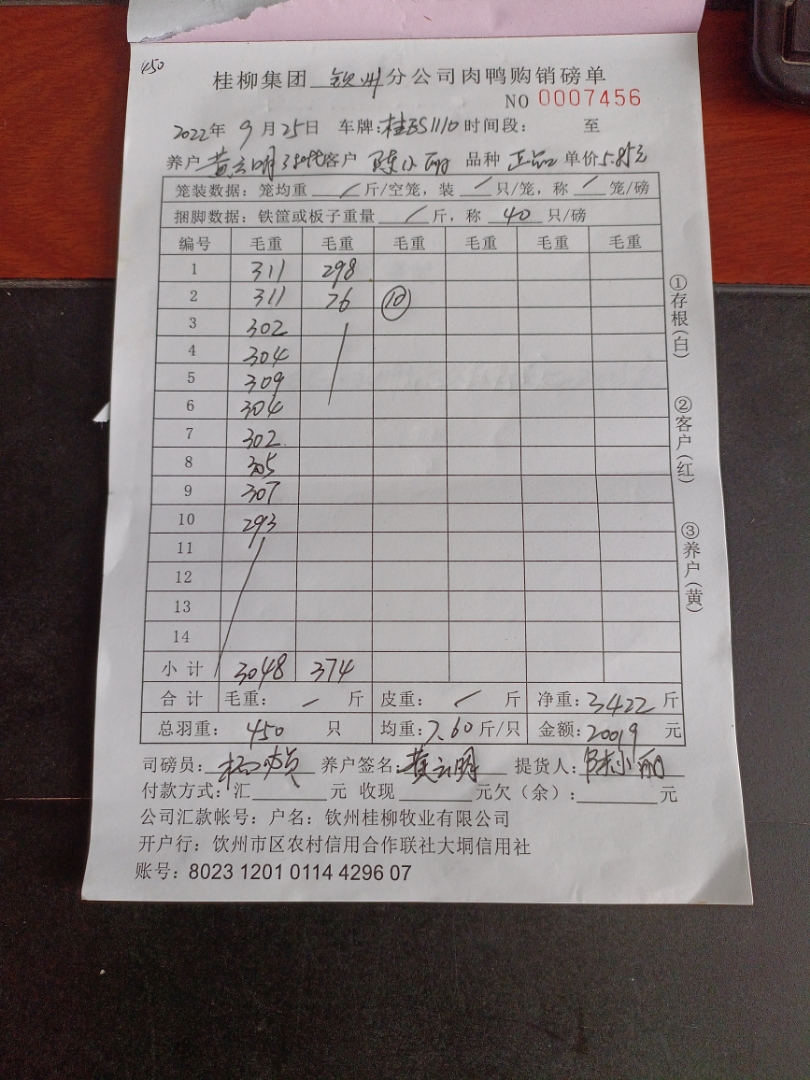 450
桂柳集团 钦州 分公司肉鸭购销磅单
NO 0007456
2022年 9月25日 车牌:桂BS1110 时间段: 至
养户 黄云明 客户 陈小丽 品种 正品 单价5.85元
笼装数据:笼均重 / 斤/空笼,装 / 只/笼,称 / 笼/磅
捆脚数据:铁筐或板子重量 / 斤,称 40 只/磅
编号 毛重 毛重 毛重 毛重 毛重 毛重
1 311 298
2 311 76 ⑩
3 302
4 304
5 309
6 304
7 302
8 305
9 307
10 293
11
12
13
14
小计 3048 374
合计 毛重: - 斤 皮重: / 斤 净重:3422 斤
总羽重: 450 只 均重:7.60斤/只 金额:20019 元
司磅员: 养户签名:黄云明 提货人:陈小丽
付款方式:汇 元 收现 元欠(余): 元
公司汇款帐号:户名:钦州桂柳牧业有限公司
开户行:钦州市区农村信用合作联社大垌信用社
账号:8023 1201 0114 4296 07
①存根(白)
②客户(红)
③养户(黄)